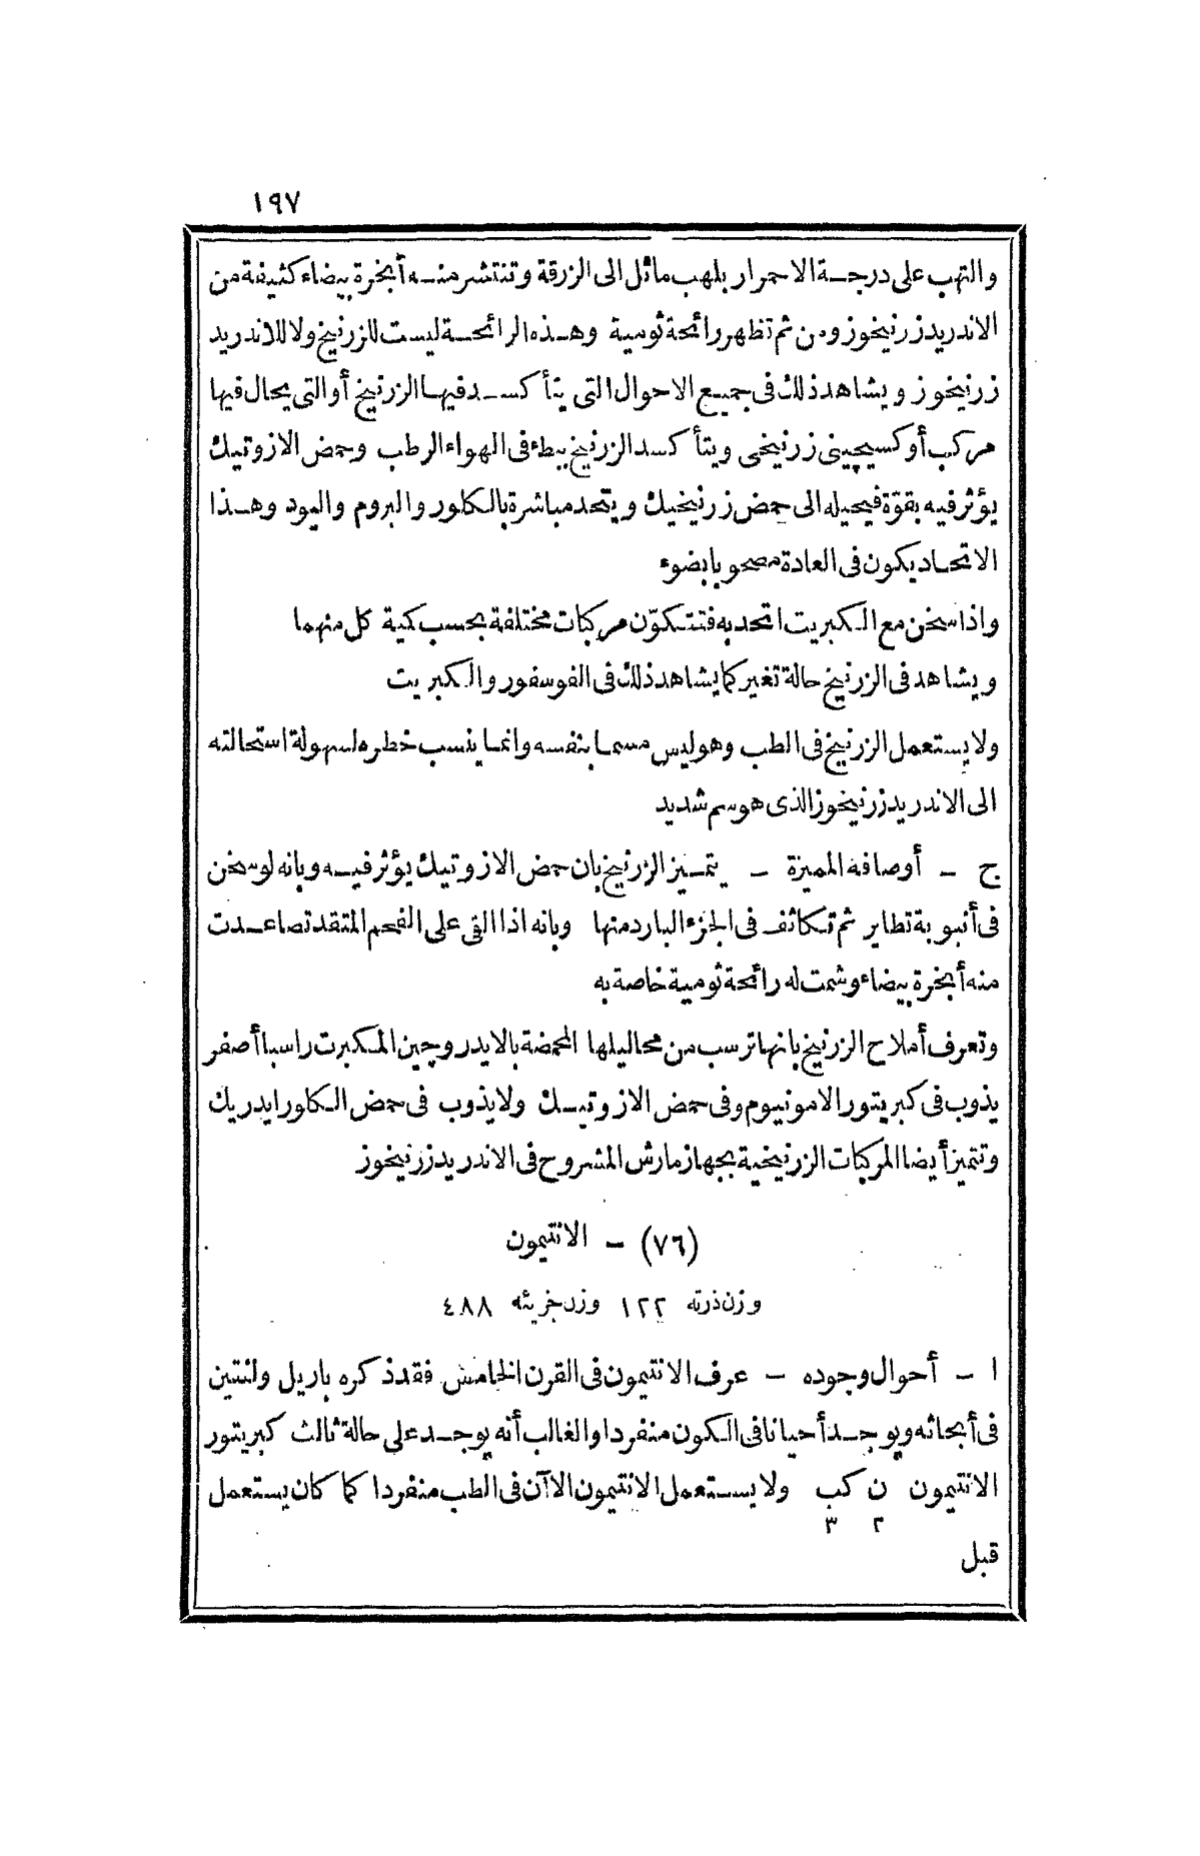 ١٩٧
والتهب على درجة الاحمرار بلهب مائل الى الزرقة وتنتشر منه أبخرة بيضاء كثيفة من
الاندريد زرنيخوز ومن ثم تظهر رائحة ثومية وهذه الرائحة ليست للزرنيخ ولا للاندريد
زرنيخوز ويشاهد ذلك فى جميع الاحوال التى يتأكسد فيها الزرنيخ أو التى يحال فيها
مركب أوكسيچينى زرنيخى ويتأكسد الزرنيخ ببطء فى الهواء الرطب وحمض الازوتيك
يؤثر فيه بقوّة فيحيله الى حمض زرنيخيك ويتحد مباشرة بالكلور والبروم واليود وهذا
الاتحاد يكون فى العادة مصحوبا بضوء
واذا سخن مع الكبريت اتحد به فتتكوّن مركبات مختلفة بحسب كمية كل منهما
ويشاهد فى الزرنيخ حالة تغير كما يشاهد ذلك فى الفوسفور والكبريت
ولا يستعمل الزرنيخ فى الطب وهو ليس مسما بنفسه وانما ينسب خطره لسهولة استحالته
الى الاندريد زرنيخوز الذى هو سم شديد
ج - أوصافه المميزة - يتميز الزرنيخ بان حمض الازوتيك يؤثر فيه وبانه لو سخن
فى أنبوبة تطاير ثم تكاثف فى الجزء البارد منها وبانه اذا القى على الفحم المتقد تصاعدت
منه أبخرة بيضاء وشمت له رائحة ثومية خاصة به
وتعرف أملاح الزرنيخ بانها ترسب من محاليلها المحمضة بالايدروچين المكبرت راسبا أصفر
يذوب فى كبريتور الامونيوم وفى حمض الازوتيك ولا يذوب فى حمض الكلورايدريك
وتتميز أيضا المركبات الزرنيخية بجهاز مارش المشروح فى الاندريد زرنيخوز
(٧٦) - الانتيمون
وزن ذرته ١٢٢ وزن جزيئه ٤٨٨
ا - أحوال وجوده - عرف الانتيمون فى القرن الخامس فقد ذكره باريل ولنتين
فى أبحاثه ويوجد أحيانا فى الكون منفردا والغالب أنه يوجد على حالة ثالث كبريتور
الانتيمون ن كب ولا يستعمل الانتيمون الآن فى الطب منفردا كما كان يستعمل
٢ ٣
قبل